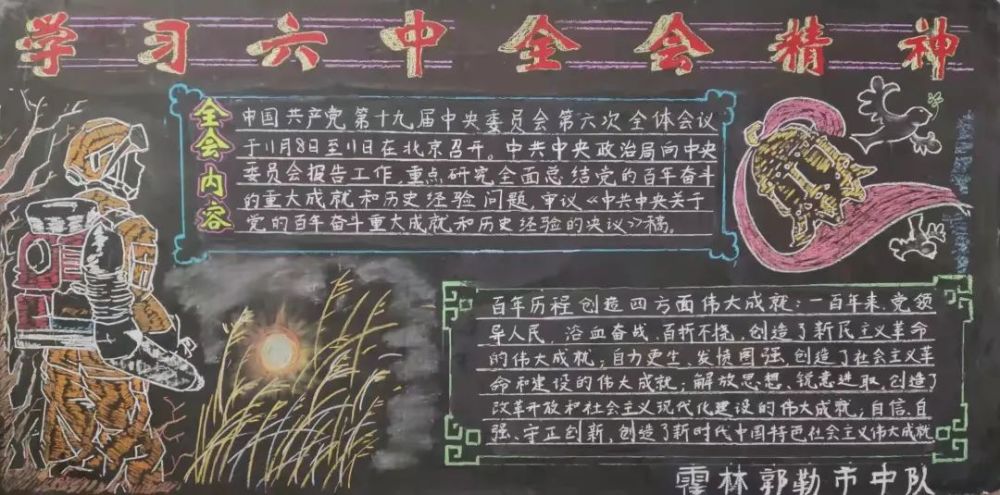 学习六中全会精神
全会内容
中国共产党第十九届中央委员会第六次全体会议
于11月8日至11日在北京召开。中共中央政治局向中央
委员会报告工作,重点研究全面总结党的百年奋斗
的重大成就和历史经验问题,审议《中共中央关于
党的百年奋斗重大成就和历史经验的决议》稿。
百年历程创造四方面伟大成就:一百年来,党领
导人民浴血奋战、百折不挠,创造了新民主主义革命
的伟大成就;自力更生、发愤图强,创造了社会主义革
命和建设的伟大成就;解放思想、锐意进取,创造了
改革开放和社会主义现代化建设的伟大成就;自信自
强、守正创新,创造了新时代中国特色社会主义伟大成就
霍林郭勒市中队